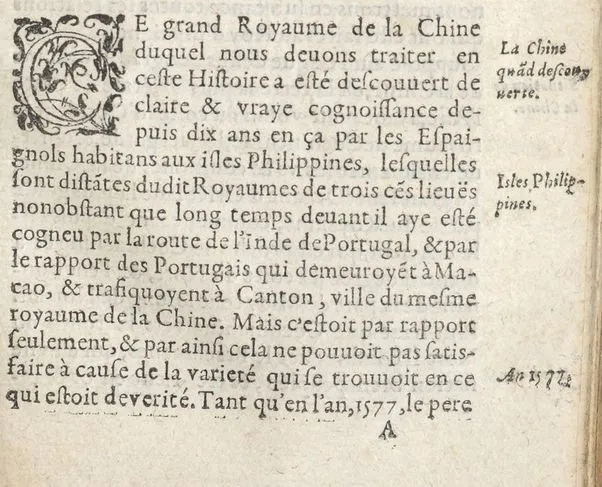 CE grand Royaume de la Chine
duquel nous deuons traiter en
ceſte Hiſtoire a eſté deſcouuert de
claire & vraye cognoiſſance de-
puis dix ans en ça par les Eſpai-
gnols habitans aux iſles Philippines, leſquelles
ſont diſtãtes dudit Royaumes de trois cẽs lieuës
nonobſtant que long temps deuant il aye eſté
cogneu par la route de l'Inde de Portugal, & par
le rapport des Portugais qui demeuroyẽt à Ma-
cao, & trafiquoyent à Canton, ville du meſme
royaume de la Chine. Mais c'eſtoit par rapport
ſeulement, & par ainſi cela ne pouuoit pas ſatis-
faire à cauſe de la varieté qui se trouuoit en ce
qui eſtoit de verité. Tant qu'en l'an, 1577, le pere
A
La Chine
quãd deſcou
uerte.
Isles Philip-
pines.
An 1577.